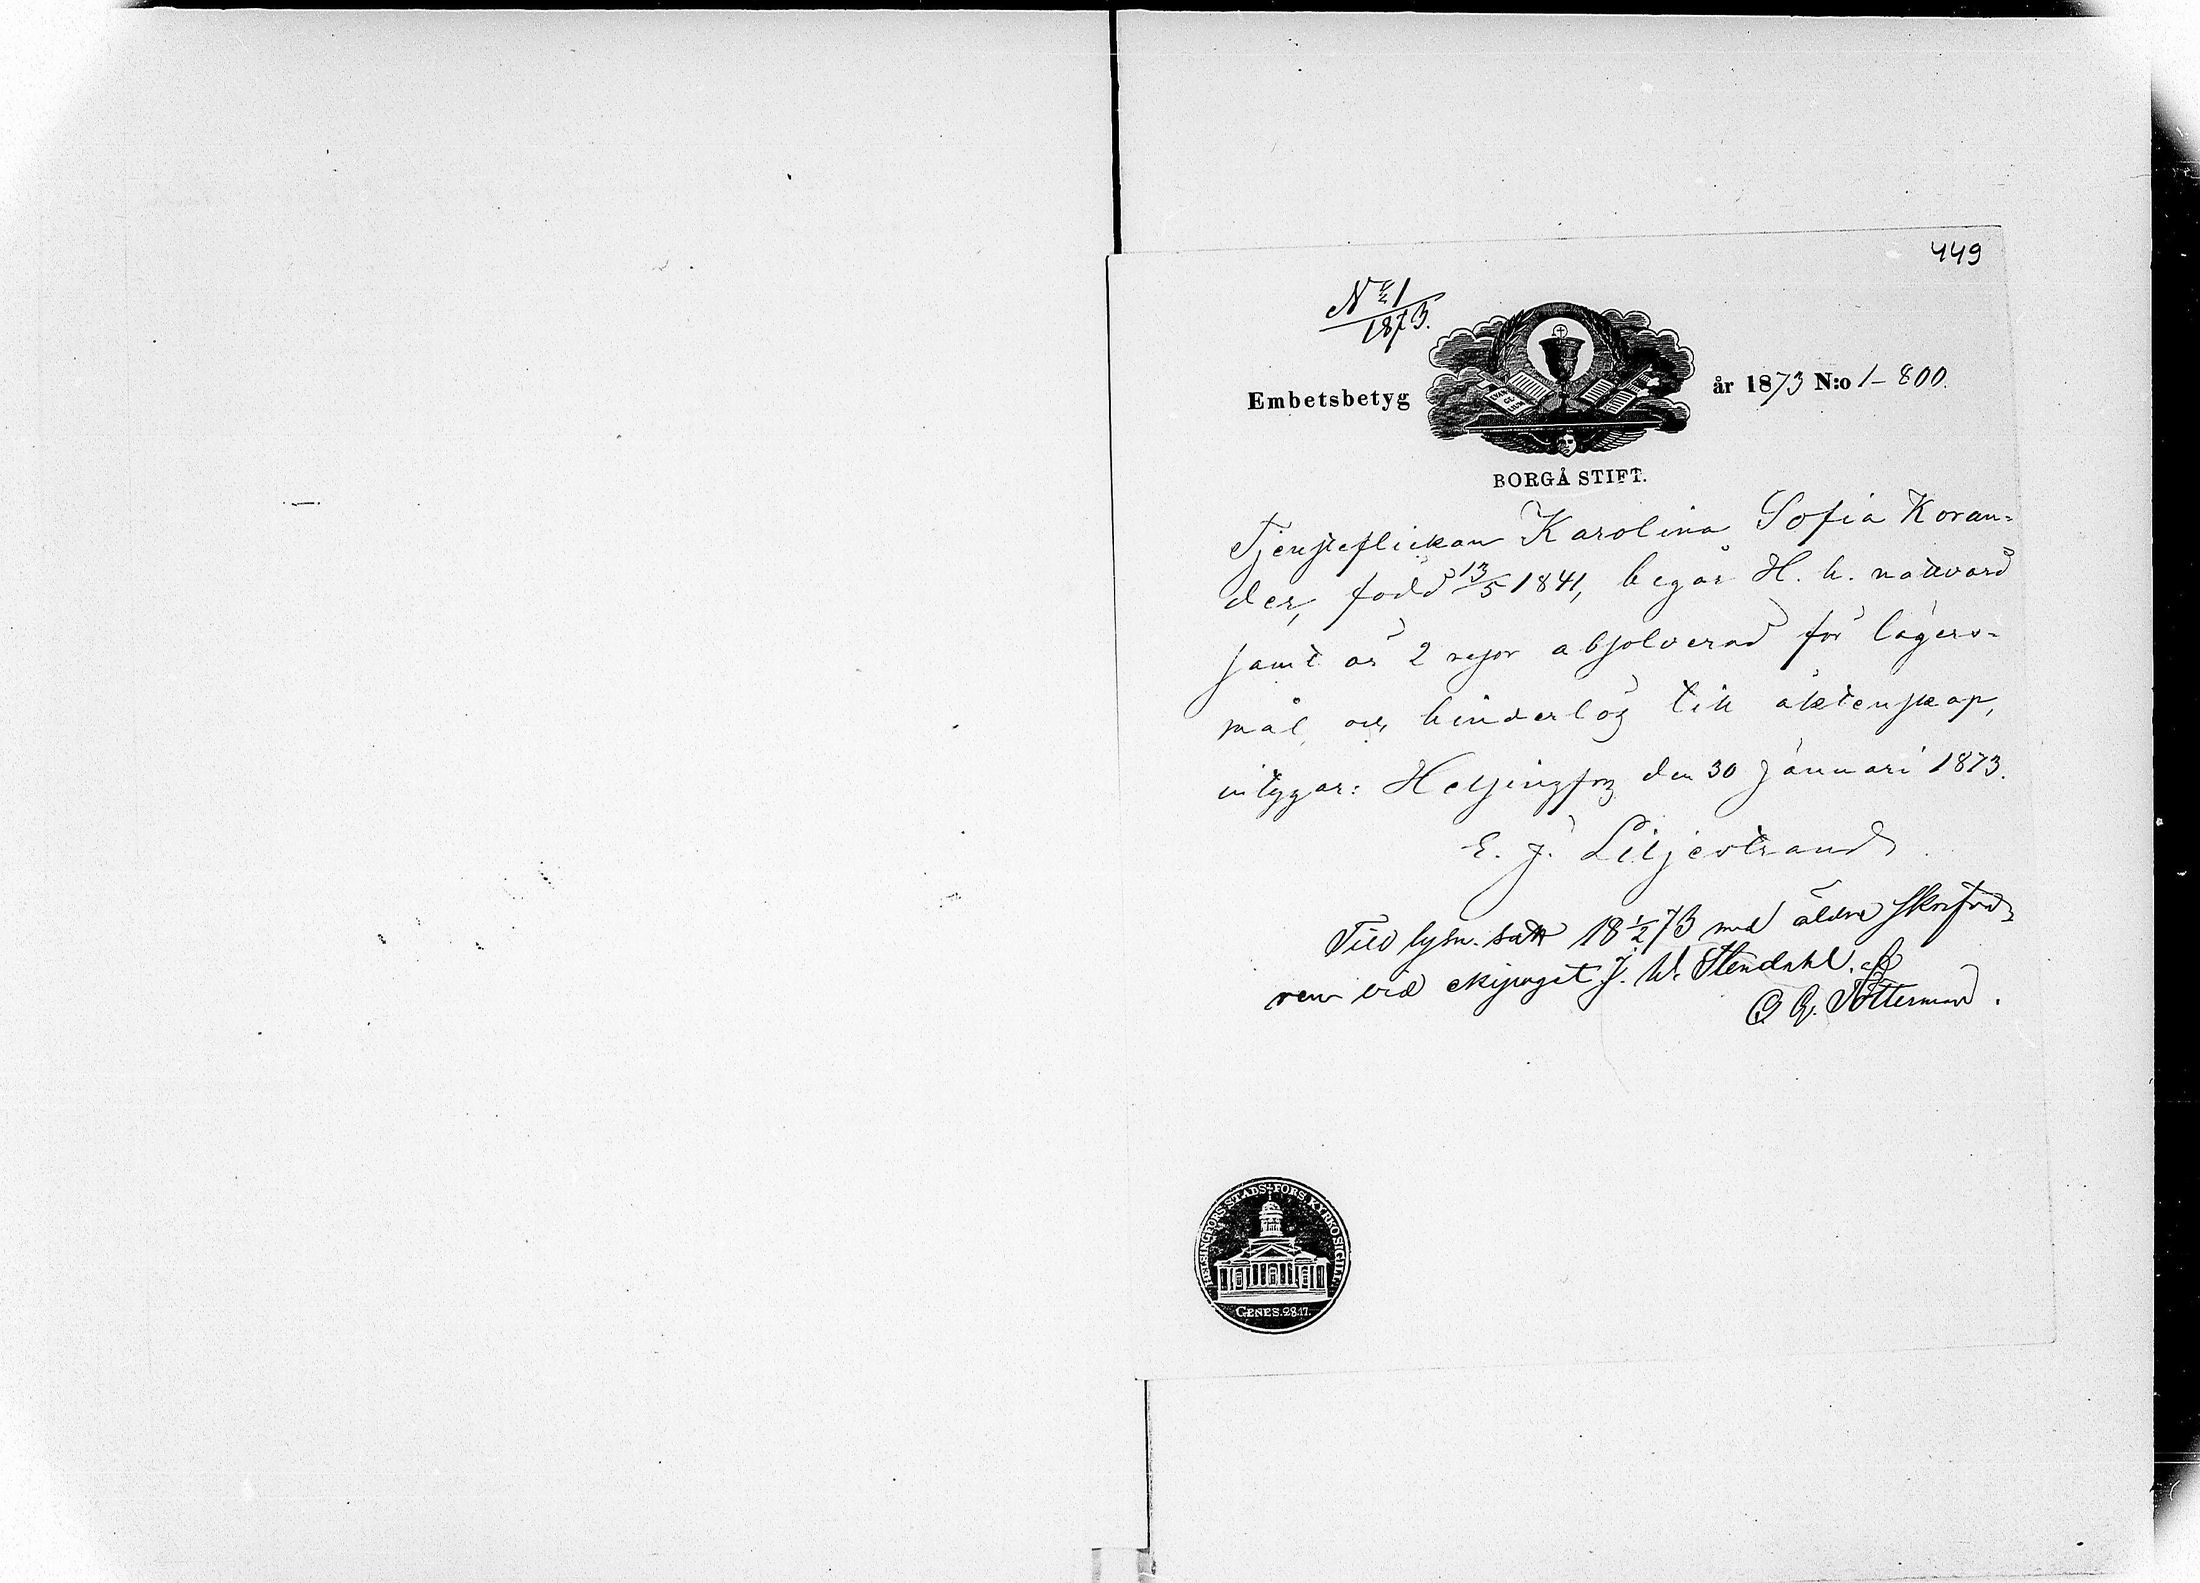 449
No 1
1873.
Embetsbetyg år 1873 N:o 1-800.
BORGÅ STIFT.
Tjensteflickan Karolina Sofia Koran-
der, född 13/5 1841, begår H. h. nattvard
samt är 2 resor absolverad för lägers-
mål och hinderlös till äktenskap,
intygar: Helsingfors den 30 Januari 1873.
E. J. Liljestrand
Till lysn. 18 1/2 73 med äldre skrifva-
ren vid ekipaget J. W. Stendahl.
Totterman.
HELSINGFORS STADS-FÖRS. KYRKOSIGILL.
GENES. 28.17.